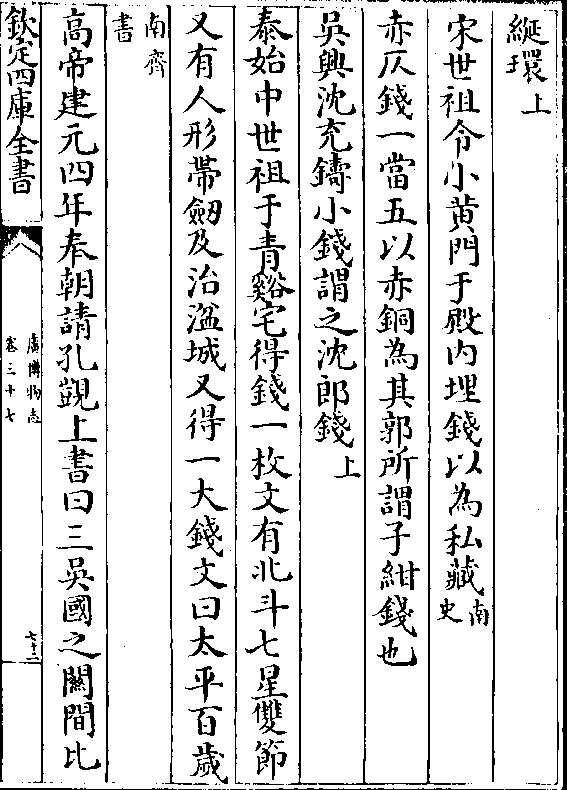 綖環上
宋世祖令小黄門于殿内埋錢以為私藏南史
赤仄錢一當五以赤銅為其郭所謂子紺錢也
吳興沈充鑄小錢謂之沈郎錢上
泰始中世祖于青谿宅得錢一枚文有北斗七星雙節
又有人形帶劒及治湓城又得一大錢文曰太平百歲
南齊書
高帝建元四年奉朝請孔覬上書曰三吳國之關間比
欽定四庫全書
廣博物志
卷三十七
七十二